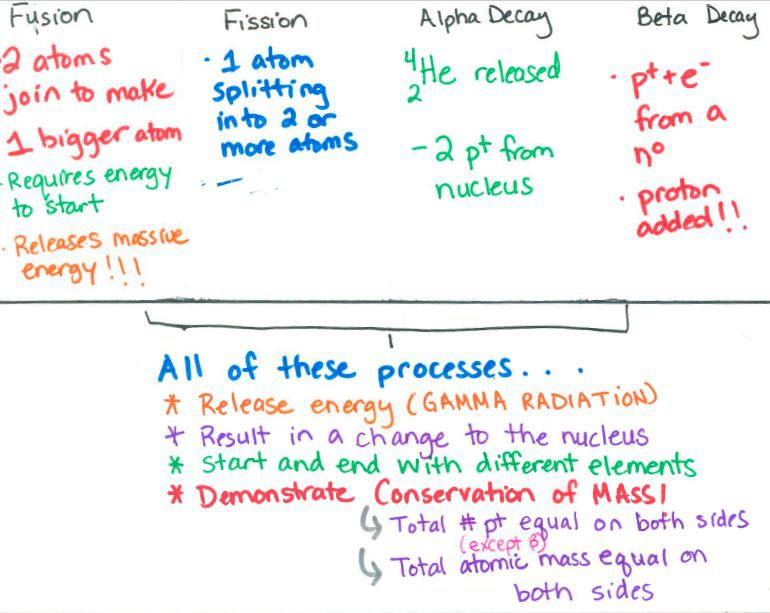 Fusion
2 atoms
join to make
1 bigger atom
· Requires energy
to start
· Releases massive
energy!!!
Fission
· 1 atom
splitting
into 2 or
more atoms
Alpha Decay
⁴₂He released
- 2 p⁺ from
nucleus
Beta Decay
· p⁺ + e⁻
from a
n⁰
· proton
added!!
All of these processes...
* Release energy (GAMMA RADIATION)
* Result in a change to the nucleus
* Start and end with different elements
* Demonstrate Conservation of MASS!
↳ Total # p⁺ equal on both sides
(except β)
↳ Total atomic mass equal on
both sides